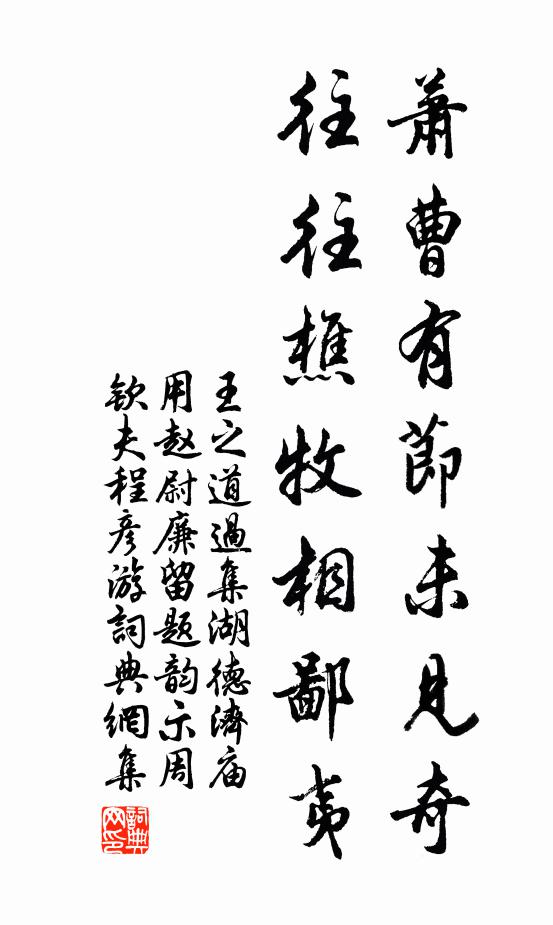 蕭曹有節未見奇
往往樵牧相鄙夷
王之道過集湖德濟庙
用赵尉廉留题韵示周
钦夫程彦游詞典網集
詞典网印